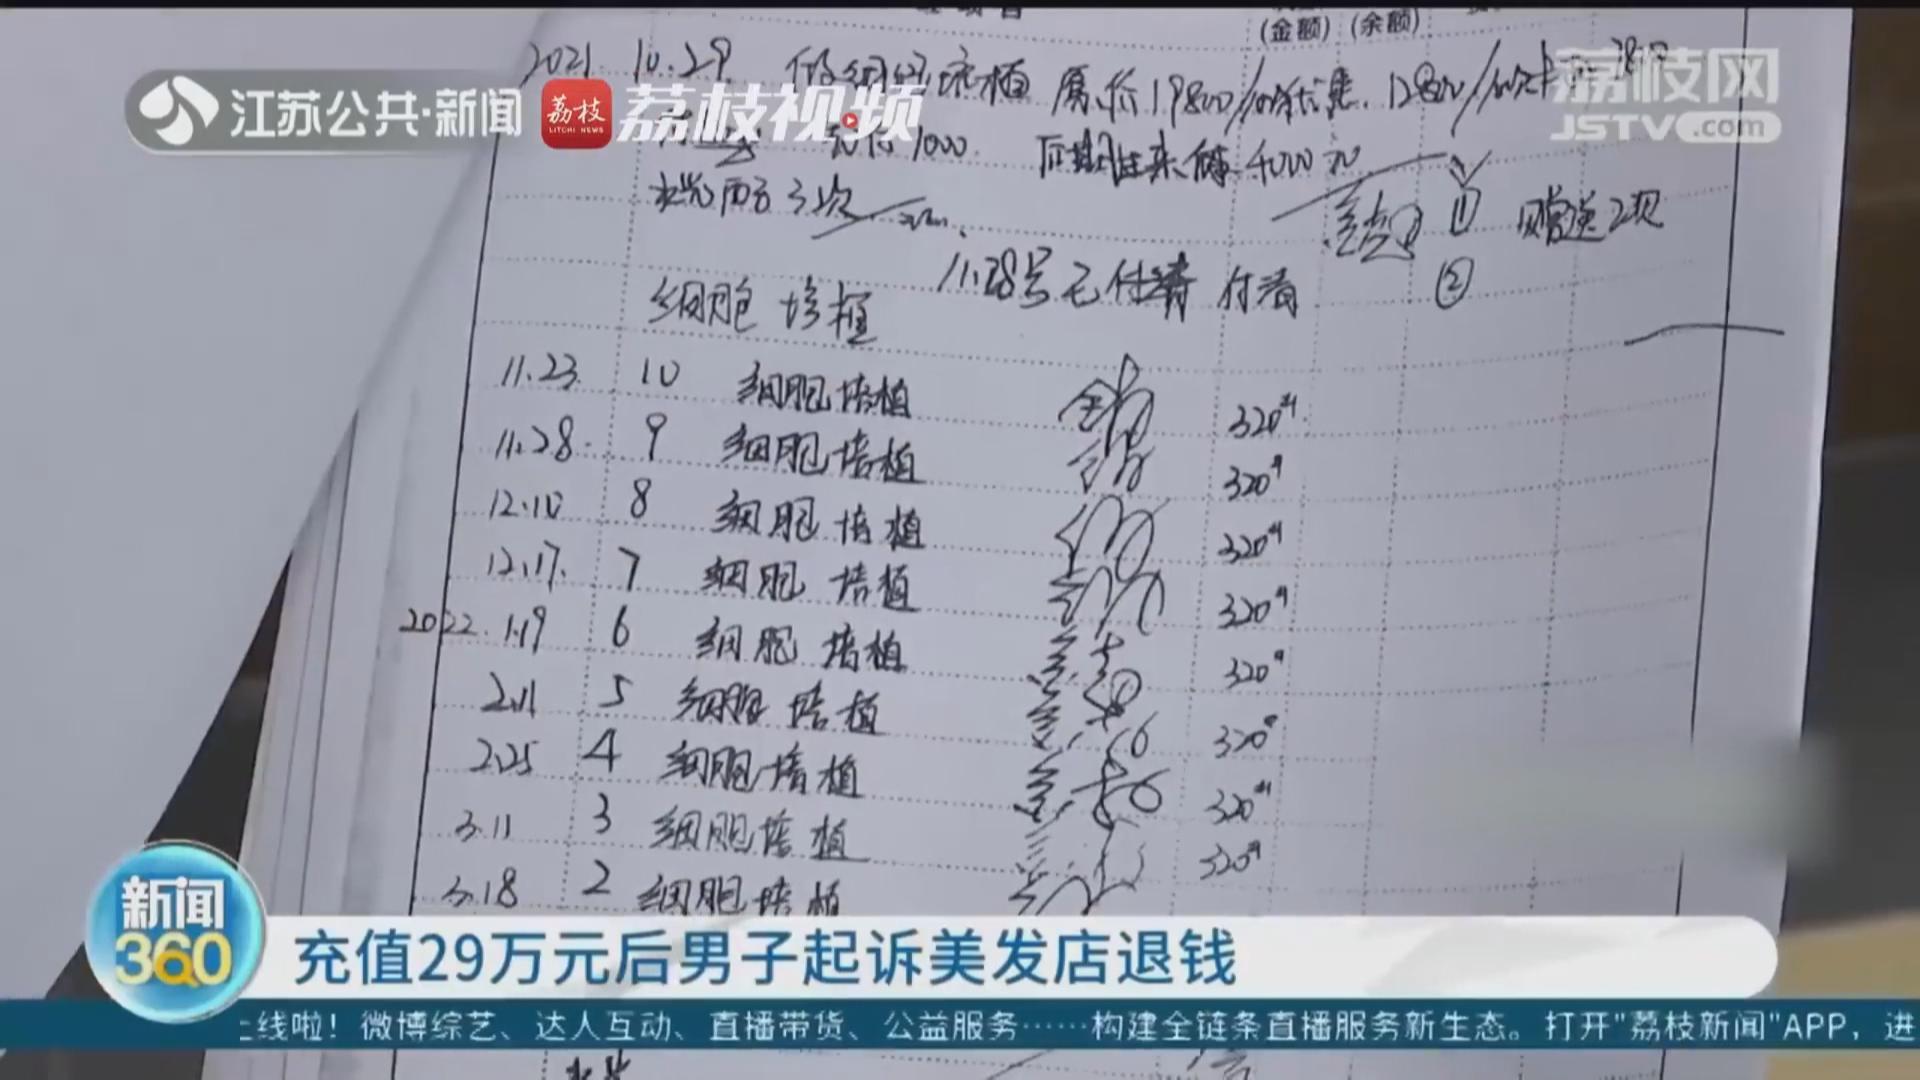 (金额) (余额)
江苏公共·新闻 荔枝 LITCHI NEWS 荔枝视频
荔枝网
JSTV.com
2021 10.29 做细胞培植 原价19800/
1000 后期进来做 4000元
水光面部3次
① 赠送2次
②
11.28号已付清 付清
细胞 培植
11.23 10 细胞培植 320
11.28 9 细胞培植 320
12.10 8 细胞培植 320
12.17 7 细胞培植 320
2022.1.19 6 细胞培植 320
2.11 5 细胞培植 320
2.25 4 细胞培植 320
3.11 3 细胞培植 320
3.18 2 细胞培植
新闻
360
充值29万元后男子起诉美发店退钱
上线啦！微博综艺、达人互动、直播带货、公益服务……构建全链条直播服务新生态。打开"荔枝新闻"APP，进